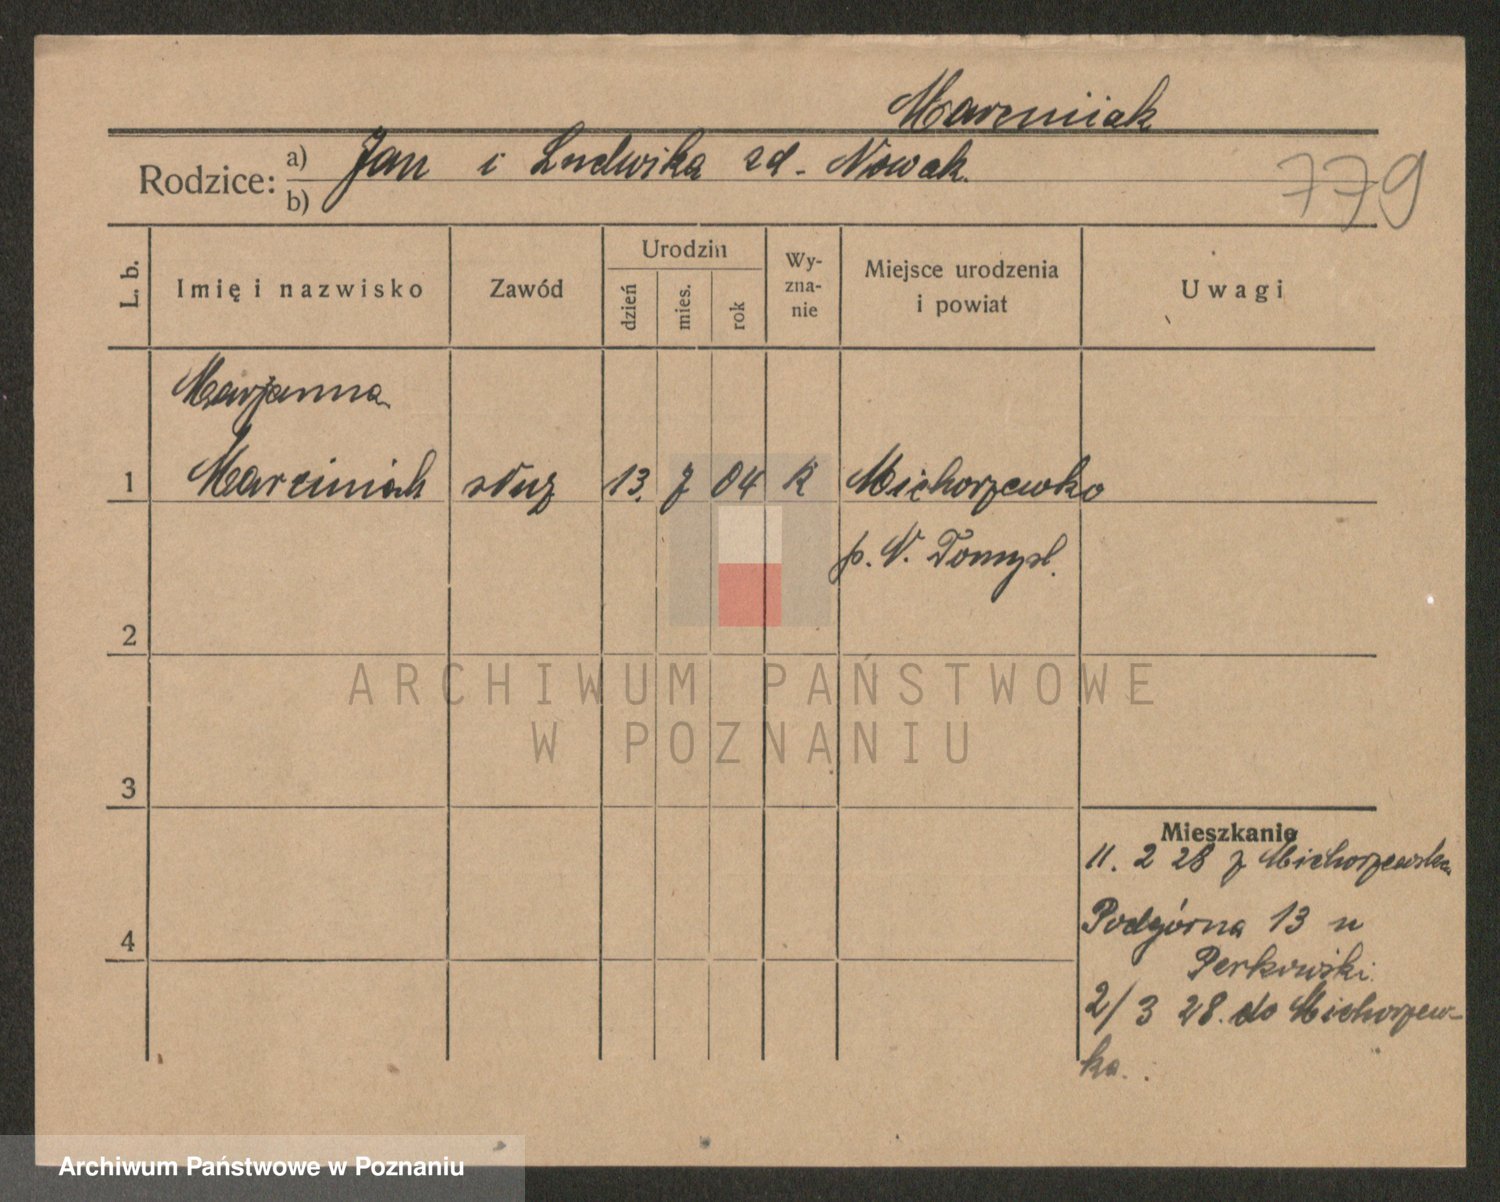 Marciniak
Rodzice: a) Jan i Ludwika zd. Nowak.
b)
779
L. b.
Imię i nazwisko
Zawód
Urodzin
dzień
mies.
rok
Wy-
zna-
nie
Miejsce urodzenia
i powiat
Uwagi
Marjanna
1 Marciniak służ 13. 7 04 k Michorzewko
p. N. Tomyśl.
2
3
4
Mieszkanie
11. 2 28 z Michorzewka
Podgórna 13 u
Perkowski
2/3 28. do Michorzew-
ka.
ARCHIWUM PAŃSTWOWE
W POZNANIU
Archiwum Państwowe w Poznaniu